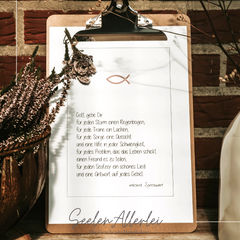 Gott gebe Dir
für jeden Sturm einen Regenbogen,
für jede Träne ein Lachen,
für jede Sorge eine Aussicht
und eine Hilfe in jeder Schwierigkeit,
für jedes Problem, das das Leben schickt,
einen Freund es zu teilen,
für jeden Seufzer ein schönes Lied
und eine Antwort auf jedes Gebet.
Irischer Segenswunsch
Seelen Allerlei